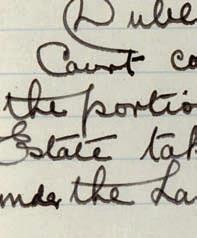 Dube
Court co
the portio
Estate tak
under the La